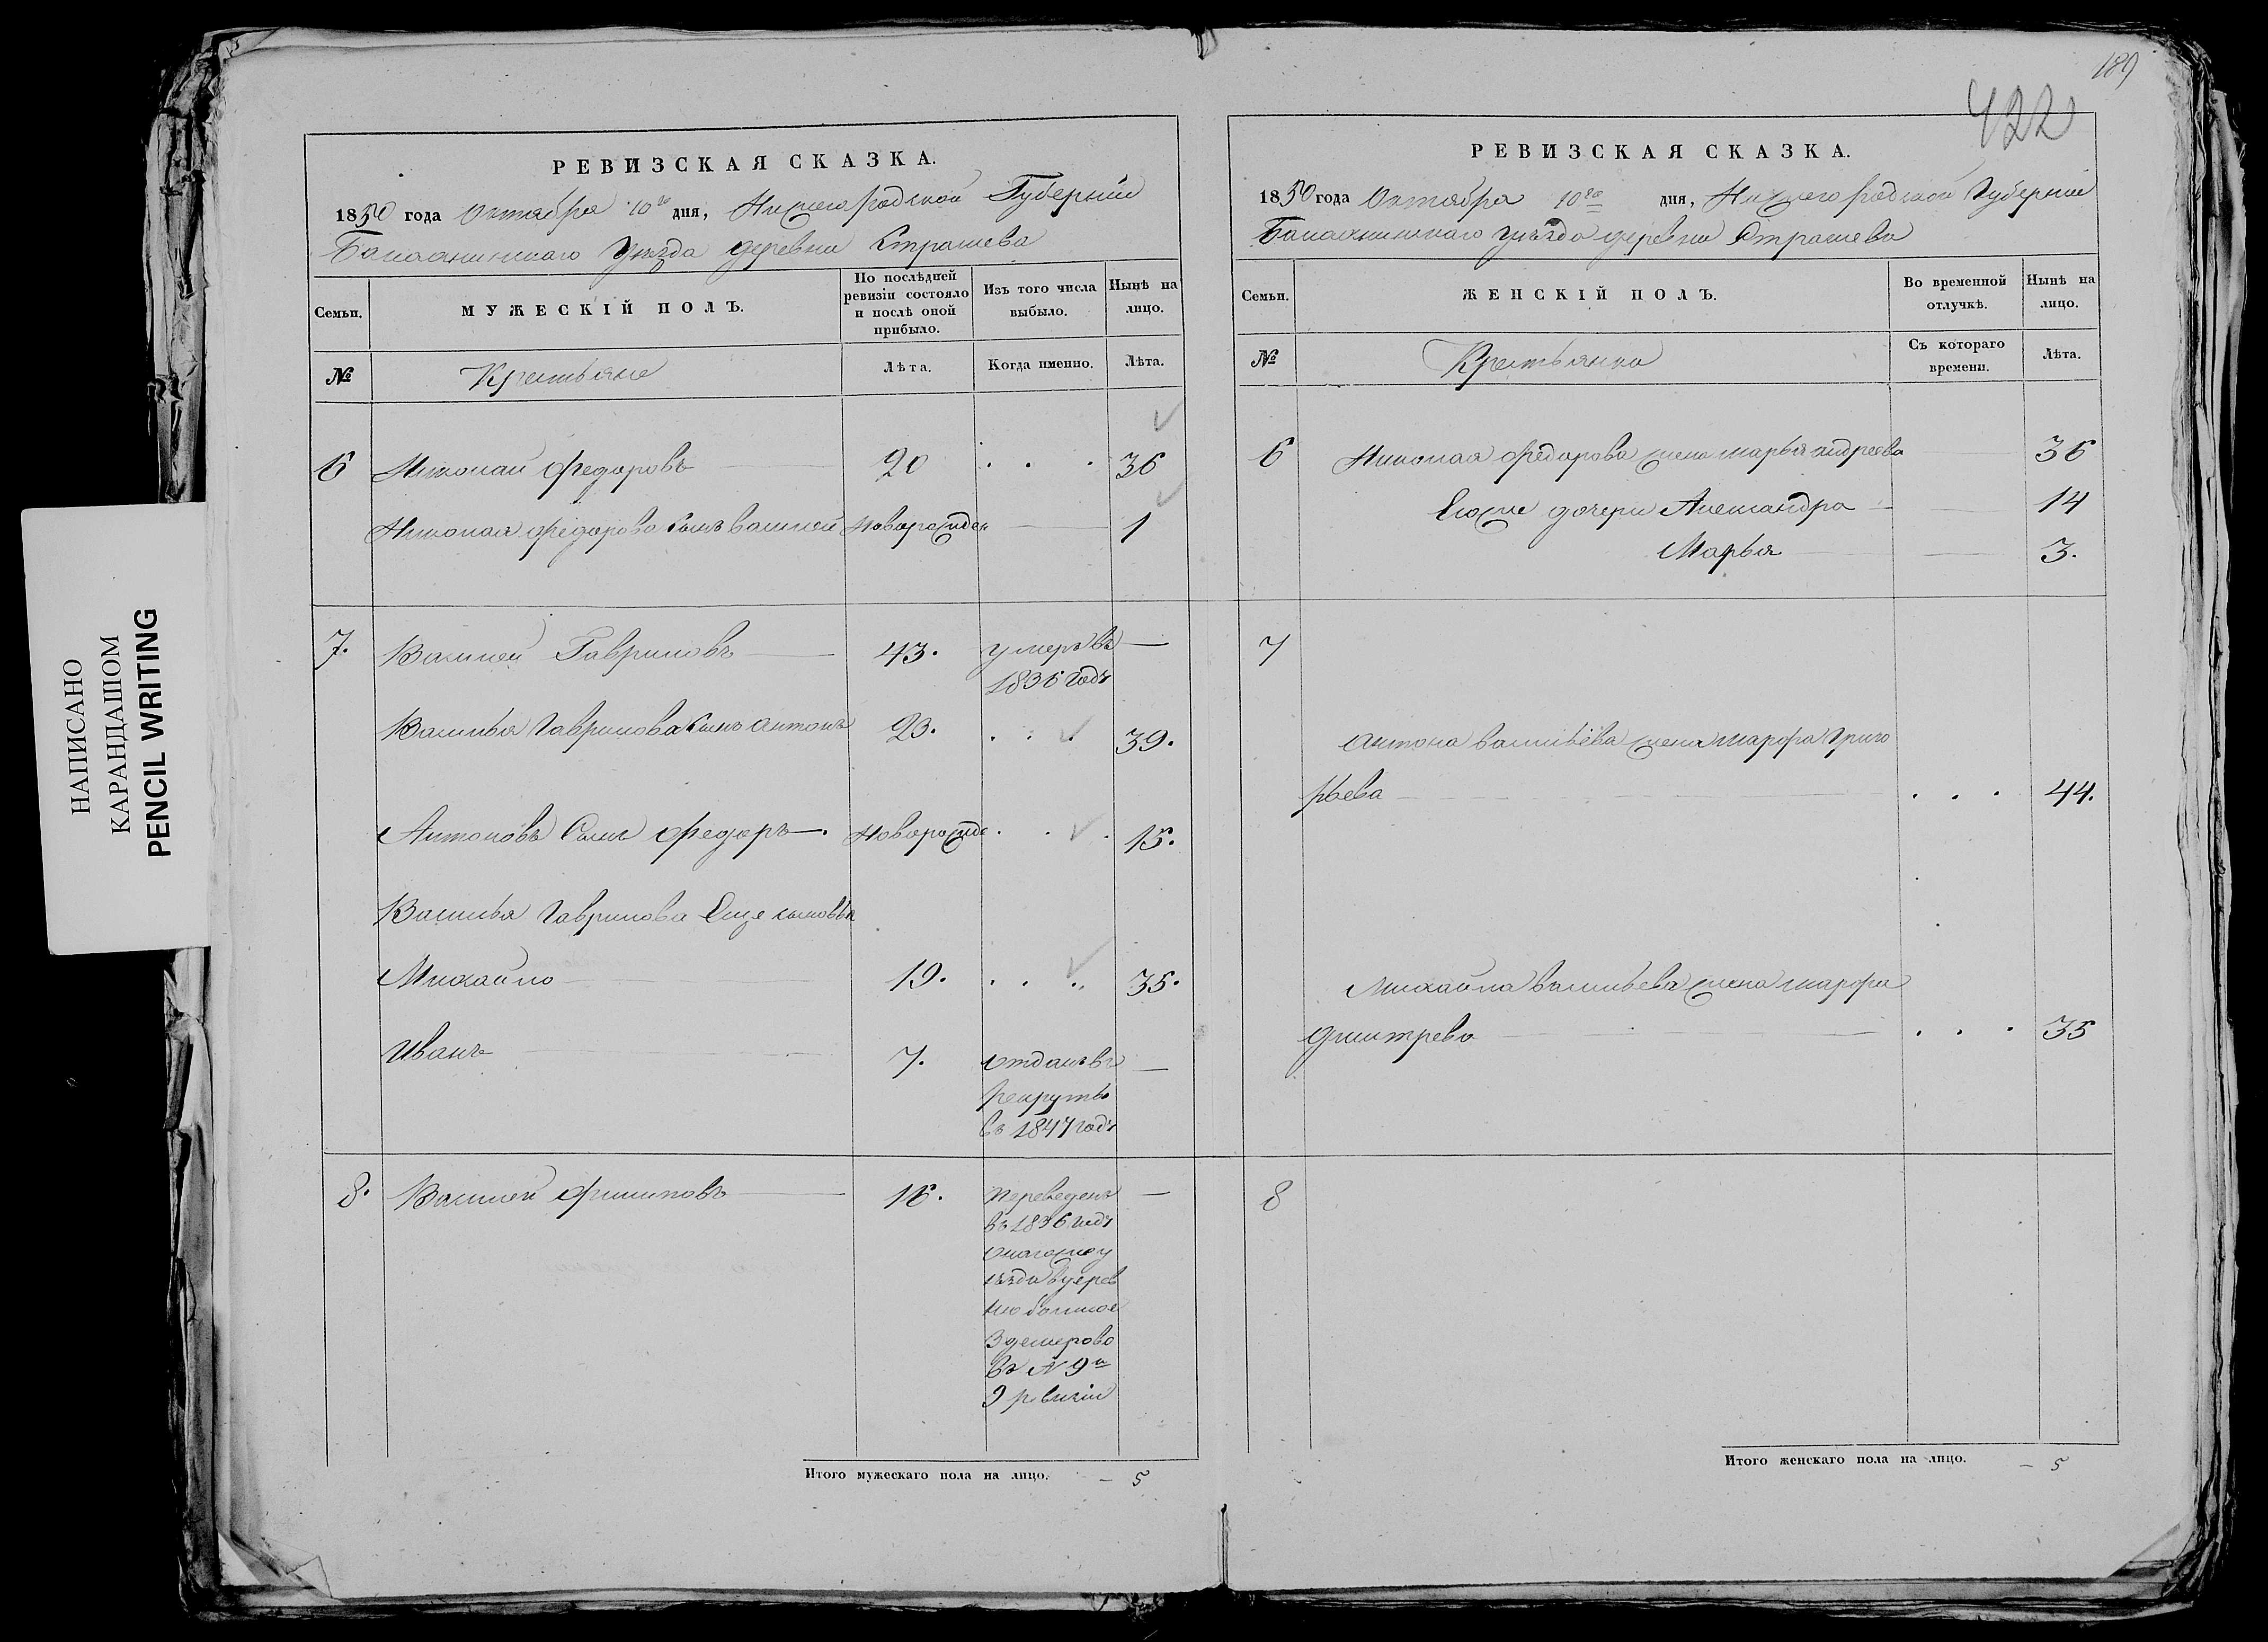 189
422
РЕВИЗСКАЯ СКАЗКА.
1850 года Октября 10го дня, Нижегородской Губернии
Балахнинскаго Уезда деревни Страшева
Семьи.
МУЖЕСКІЙ ПОЛЪ.
По послѣдней ревизіи состояло и послѣ оной прибыло.
Изъ того числа выбыло.
Нынѣ на лицо.
№
Крестьяне
Лѣта.
Когда именно.
Лѣта.
6 Николай Федоровъ 20 36
Николая Федорова сынъ Василей новорожден 1
7. Василей Гавриловъ 43. умеръ въ
1836 годѣ
Василья Гаврилова сынъ Антонъ 23. 39.
Антоновъ сынъ Федоръ новорожде 15.
Василья Гаврилова Еще сыновья
Михайло 19. 35.
Иванъ 7. отданъ въ
рекруты
въ 1847 годѣ
8. Василей Филиповъ 16. переведенъ
въ 1836 годѣ
онагоже у
ѣзда въ дерев
ню большое
въ N 9й
9 ревизіи
Итого мужескаго пола на лицо. – 5
РЕВИЗСКАЯ СКАЗКА.
1850 года Октября 10го дня, Нижегородской Губернии
Балахнинскаго уѣзда деревни Страшева
Семьи.
ЖЕНСКІЙ ПОЛЪ.
Во временной отлучкѣ.
Нынѣ на лицо.
№
Крестьянки
Съ котораго времени.
Лѣта.
6 Николая Федорова жена Марья Андреева 36
Егоже дочери Александра 14
Марья 3.
7
Антона Васильева жена Марфа Григо
рьева 44.
Михайла Васильева жена Марфа
Дмитрева 35
8
Итого женскаго пола на лицо. – 5
НАПИСАНО
КАРАНДАШОМ
PENCIL WRITING